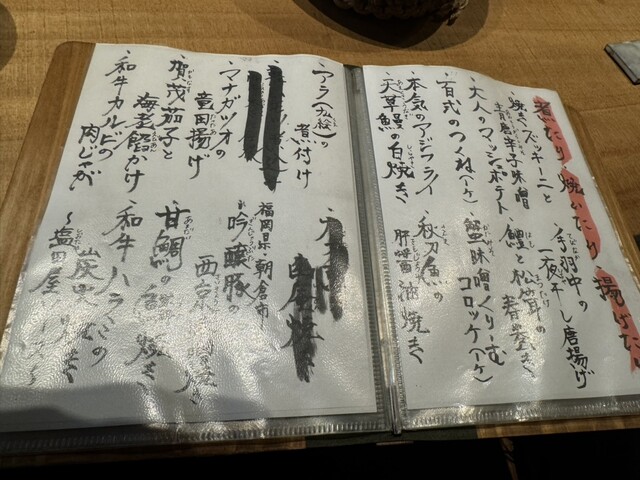 煮たり、焼いたり、揚げたり
手羽中の
一夜干し唐揚げ
焼きズッキーニと
青唐辛子味噌
鱧と松茸の
春巻き
大人のマッシュポテト
蟹味噌クリーム
コロッケ(一ヶ)
百式のつくね(一ヶ)
本気のアジフライ
秋刀魚の
肝醤油焼き
天草鰻の白焼き
アラ(九絵)の
煮付け
福岡県 朝倉市
吟醸豚の
西京
マナガツオの
竜田揚げ
甘鯛の
焼き
賀茂茄子と
海老餡かけ
和牛ハラミの
炭火
和牛カルビの
肉じゃが
〜塩田屋